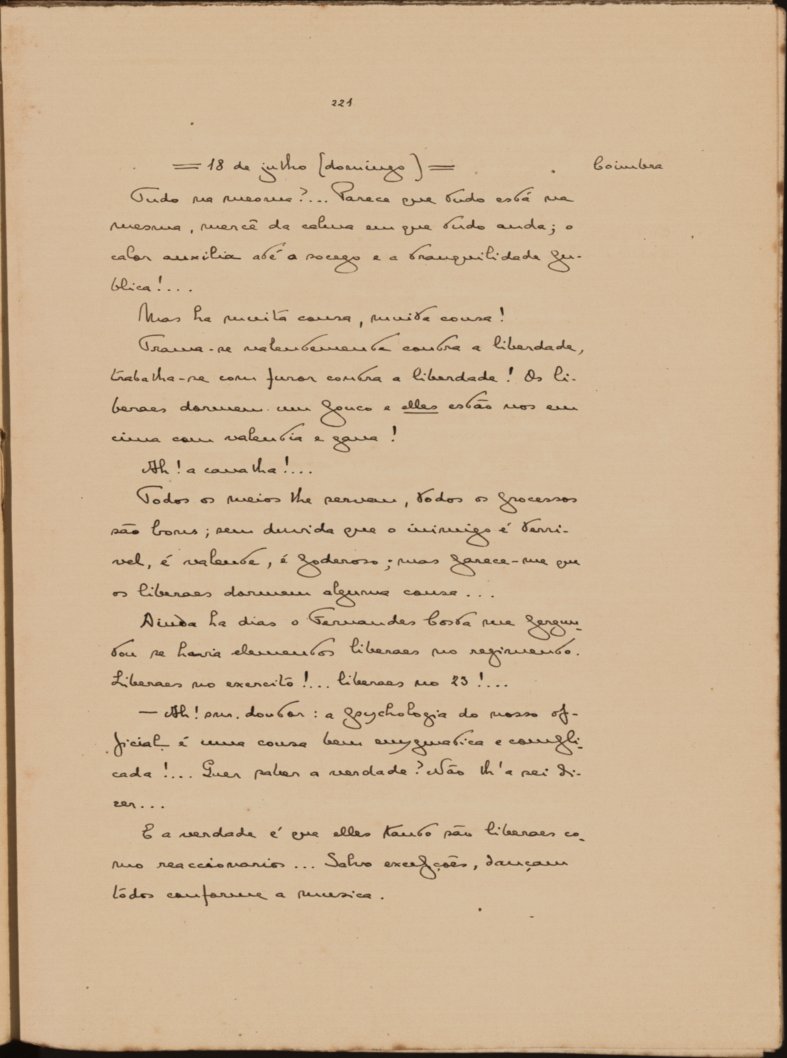 221
= 18 de julho (domingo) = Coimbra
Tudo na mesma?... Parece que tudo está na
mesma, mercê da calma em que tudo anda; o
calor auxilia até o socego e a tranquilidade pu-
blica!...
Mas ha muita cousa, muita cousa!
Trama-se valentemente contra a liberdade,
trabalha-se com furor contra a liberdade! Os li-
beraes dormem um pouco e elles estão nos em
cima com valentia e gana!
Ah! a canalha!...
Todos os meios lhe servem, todos os processos
são bons; sem duvida que o inimigo é terri-
vel, é valente, é poderoso; mas parece-me que
os liberaes dormem alguma cousa...
Ainda ha dias o Fernandes Costa me pergun-
tou se havia elementos liberaes no regimento.
Liberaes no exercito!... liberaes no 23!...
— Ah! snr. doutor: a psychologia do nosso of-
ficial é uma cousa bem enygmatica e compli-
cada!... Quer saber a verdade? Não lh'a sei di-
zer...
E a verdade é que elles tanto são liberaes co-
mo reaccionarios... Salvo excepções, dançam
tôdos conforme a musica.